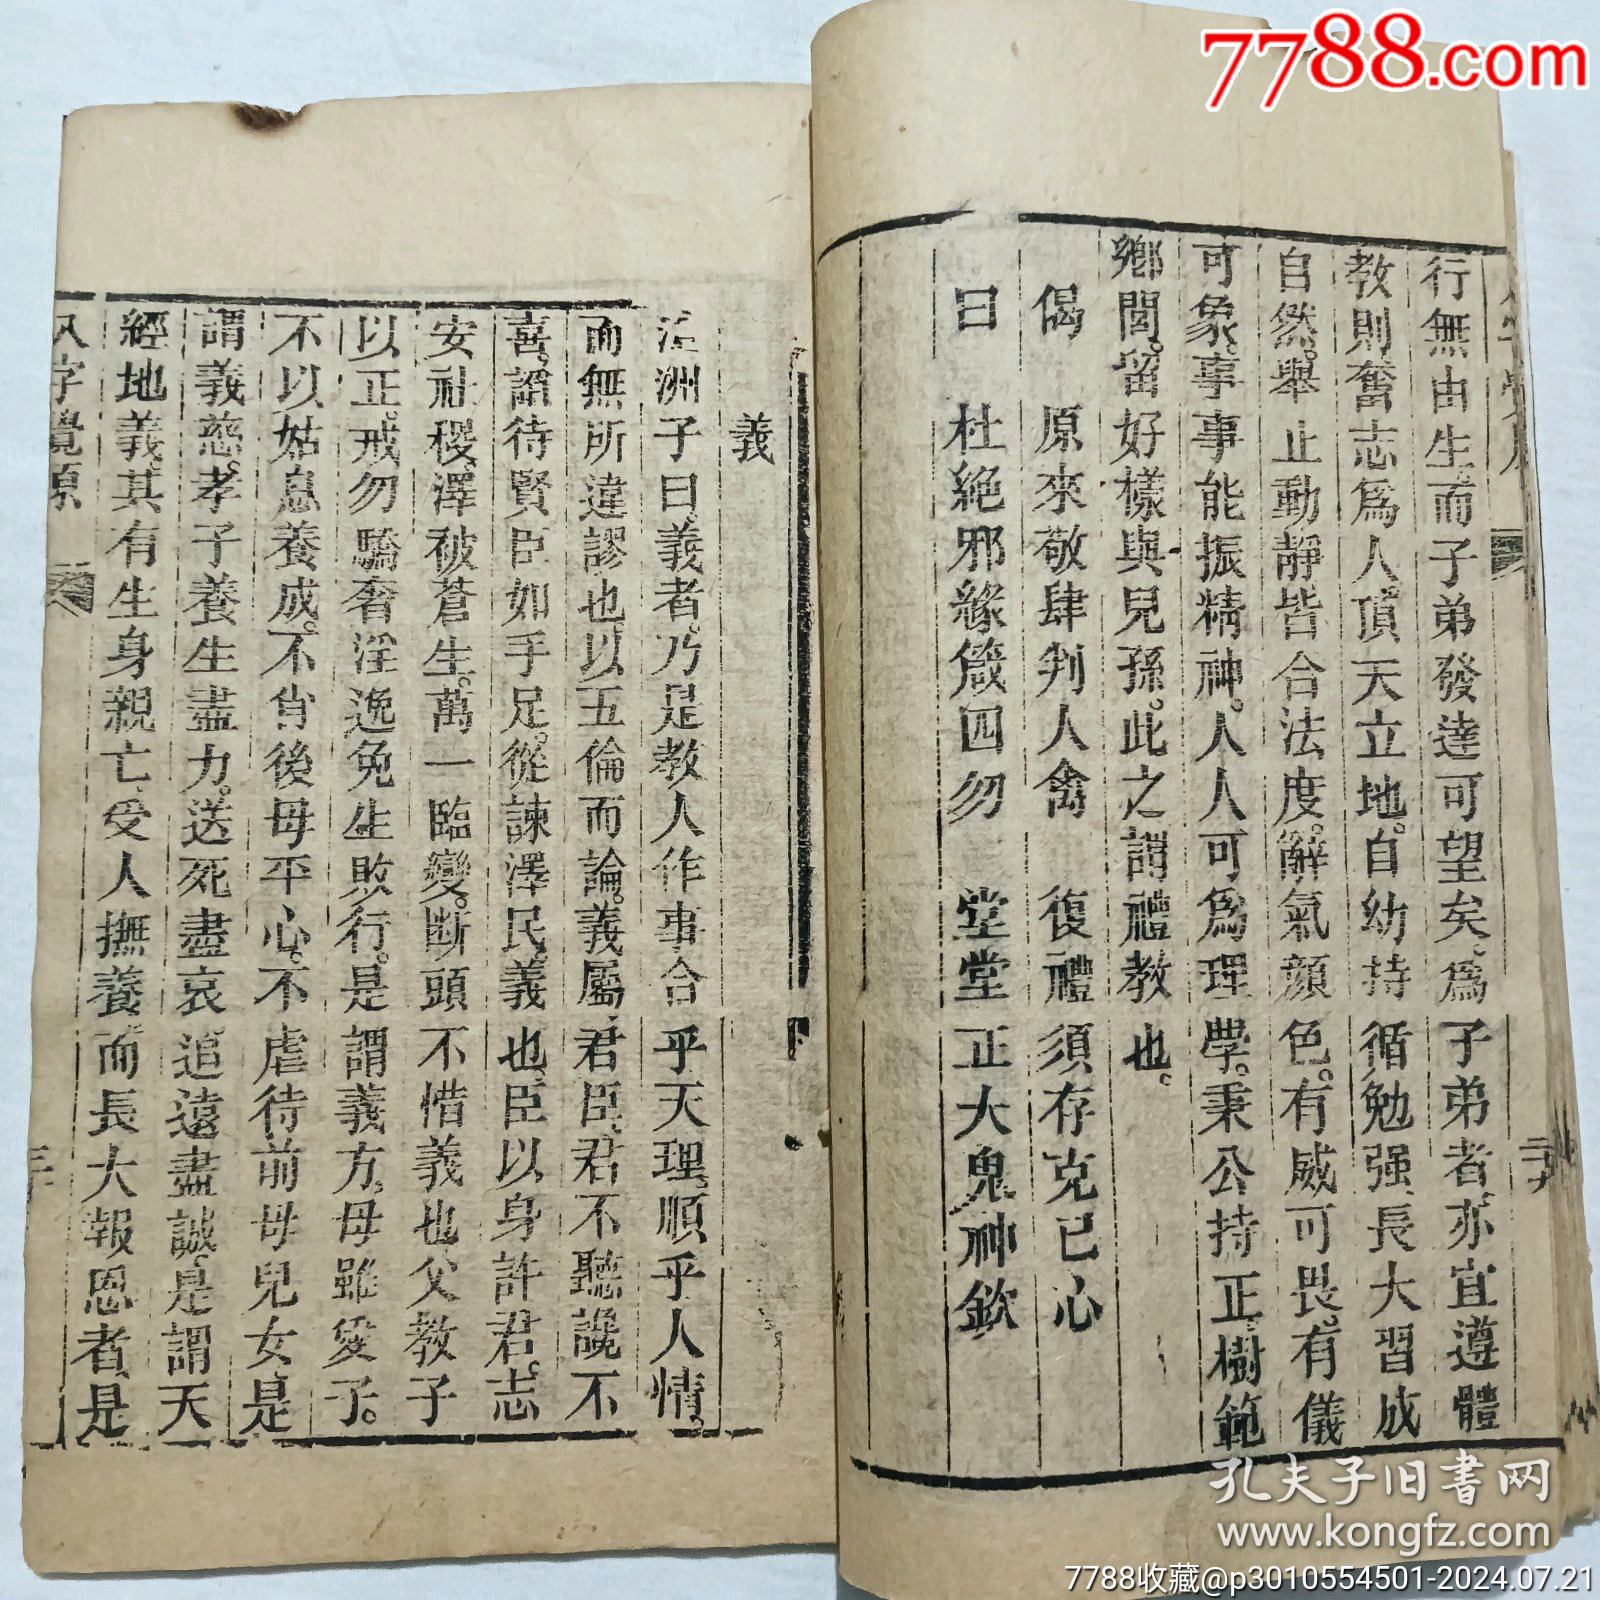 行無由生、而子弟發達可望矣、爲子弟者、亦宜遵體
教則奮志爲人、頂天立地。自幼持循勉强、長大習成
自然。舉止動靜皆合法度。辭氣顏色。有威可畏。有儀
可象。事事能振精神。人人可爲理學。秉公持正、樹範
鄉閭。留好樣與兒孫。此之謂禮教也。
偈 原來敬肆判人禽 復禮須存克己心
曰 杜絕邪緣箴四勿 堂堂正大鬼神欽
二十九
義
洲子曰、義者。乃是教人作事合乎天理。順乎人情。
而無所違謬也、以五倫而論。義屬君臣、君不聽讒不
喜。謂待賢臣如手足。從諫澤民。義也、臣以身許君。志
安社稷。澤被蒼生。萬一臨變。斷頭不惜義也父教子
以正。戒勿驕奢淫逸免生敗行。是謂義方。母雖愛子。
不以姑息養成。不肖後母平心。不虐待前母兒女、是
謂義慈。孝子養生盡力。送死盡哀追遠盡誠。是謂天
經地義、其有生身親亡、受人撫養而長大報恩者、是
八字覺原
三十
7788.com
孔夫子旧书网
www.kongfz.com
7788收藏@p3010554501-2024.07.21